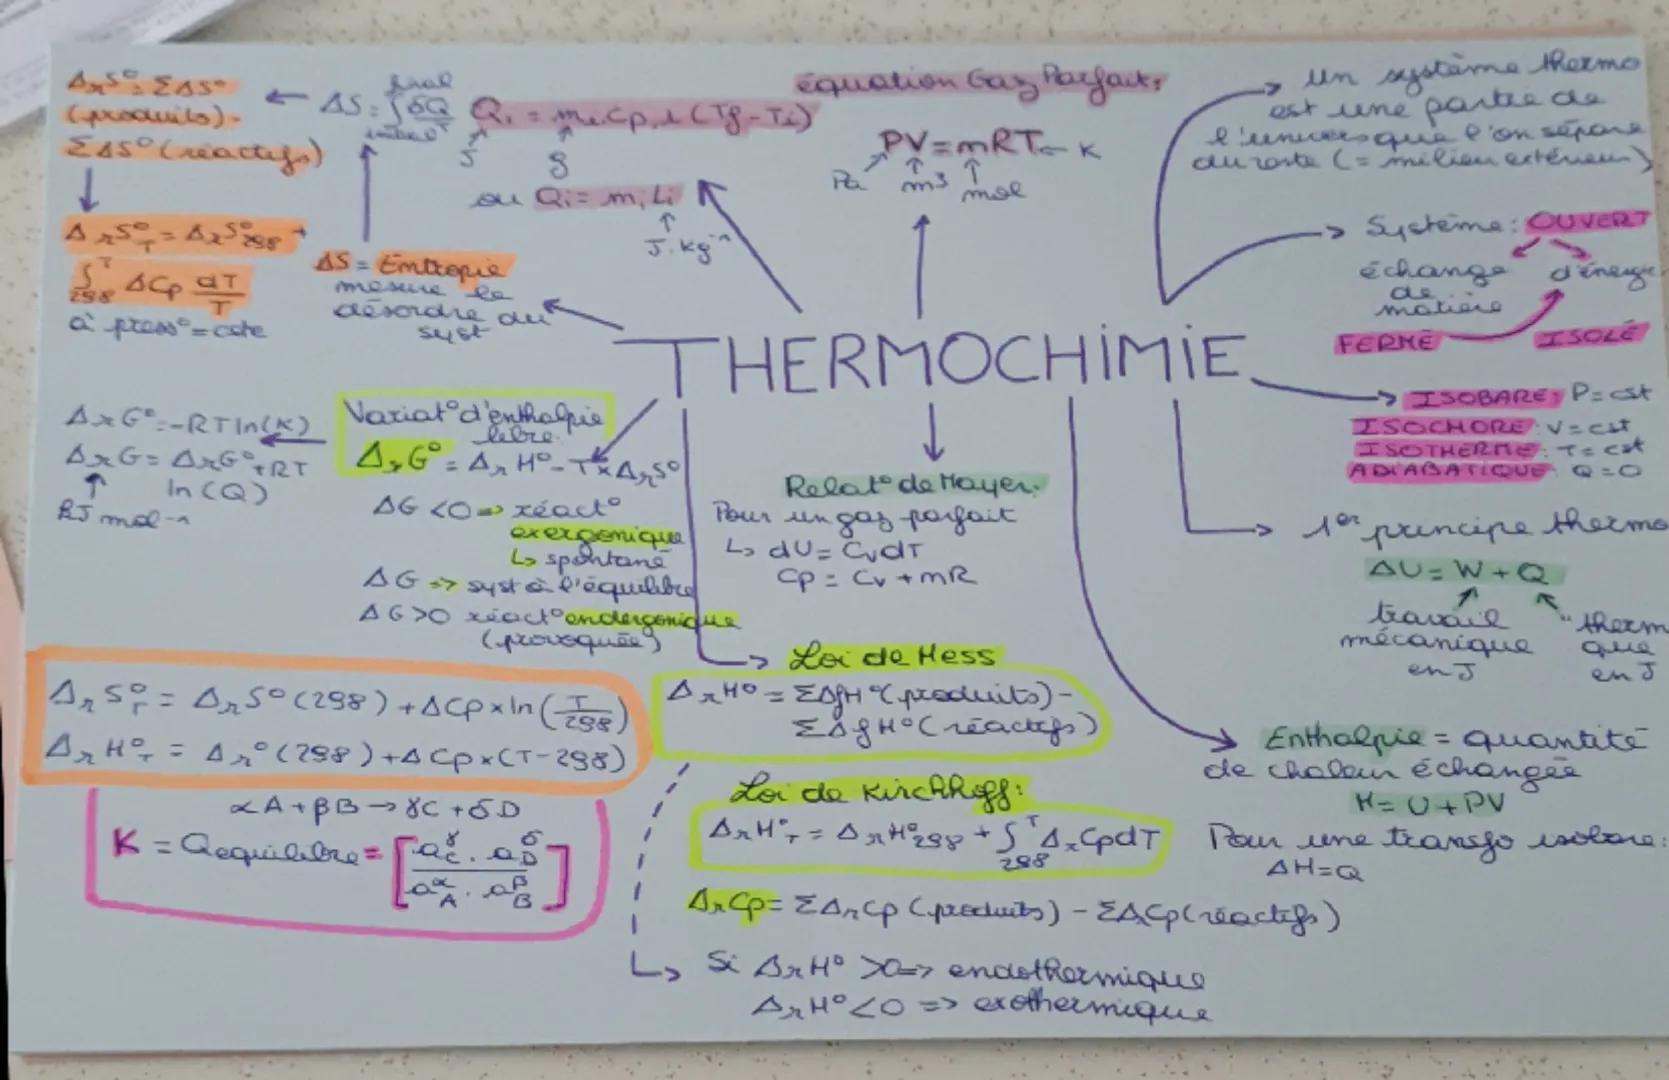 ΔrS° = ΣΔS°
(produits) -
ΣΔS° (réactifs)
ΔrS°T = ΔrS°298 +
∫298^T ΔCp dT/T
à press° = cste
ΔS = ∫initial^final δQ/T
ΔS = Entropie
mesure le
désordre du
syst
Qi = mi.Cp,i (Tf - Ti)
J
g
ou Qi = mi Li
J.kg-1
équation Gaz Parfait,
PV = mRT ← K
Pa m3 mol
un système thermo
est une partie de
l'univers que l'on sépare
du reste (= milieu extérieur)
Système : OUVERT
échange d'énergie
de
matière
FERMÉ ISOLÉ
THERMOCHIMIE
ISOBARE : P = cst
ISOCHORE : V = cst
ISOTHERME : T = cst
ADIABATIQUE : Q = 0
1er principe thermo
ΔU = W + Q
travail " therm
mécanique que
en J en J
Enthalpie = quantité
de chaleur échangée
H = U + PV
Pour une transfo isobare :
ΔH = Q
Relat° de Mayer.
Pour un gaz parfait
↳ dU = CvdT
Cp = Cv + mR
Variat° d'enthalpie
libre
ΔrG° = ΔrH° - T x ΔrS°
ΔG < 0 => réact°
exergonique
↳ spontané
ΔG => syst à l'équilibre
ΔG > 0 réact° endergonique
(provoquée)
ΔrG° = -RT ln(K)
ΔrG = ΔrG° + RT
ln(Q)
kJ mol-1
ΔrS°T = ΔrS°(298) + ΔCp x ln(T/298)
ΔrH°T = Δr°(298) + ΔCp x (T - 298)
αA + βB → γC + δD
K = Qequilibre = [aC^γ . aD^δ / aA^α . aB^β]
Loi de Hess
ΔrH° = ΣΔfH°(produits) -
ΣΔfH°(réactifs)
Loi de Kirchhoff :
ΔrH°T = ΔrH°298 + ∫298^T ΔrCpdT
ΔrCp = ΣΔrCp (produits) - ΣΔrCp (réactifs)
Si ΔrH° > 0 => endothermique
ΔrH° < 0 => exothermique